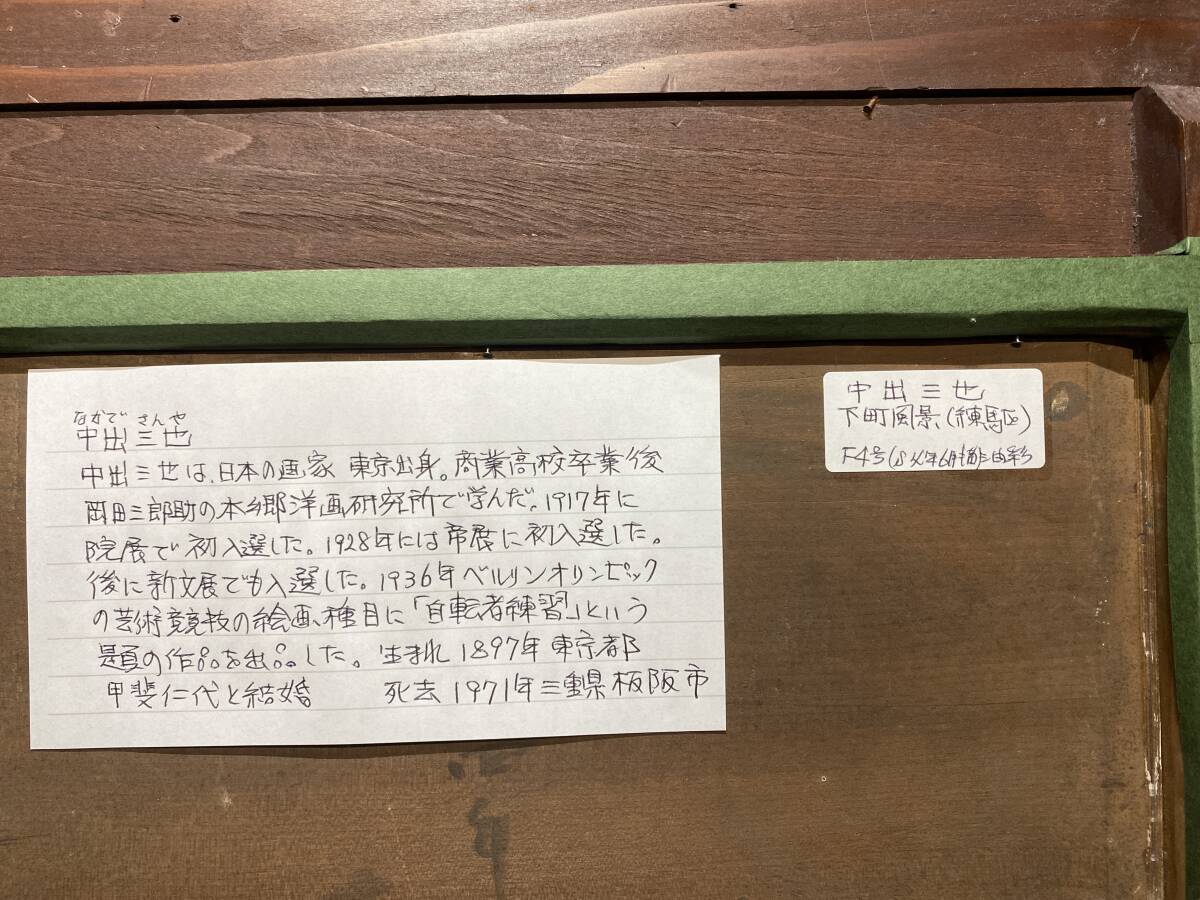 なかで さんや
中出三也
中出三也は、日本の画家 東京出身。商業高校卒業後
岡田三郎助の本郷洋画研究所で学んだ。1917年に
院展で初入選した。1928年には帝展に初入選した。
後に新文展でも入選した。1936年ベルリンオリンピック
の芸術競技の絵画種目に「自転者練習」という
題の作品を出品した。生まれ 1897年 東京都
甲斐仁代と結婚 死去 1971年三重県板阪市
中出三也
下町風景(練馬区)
F4号
油彩